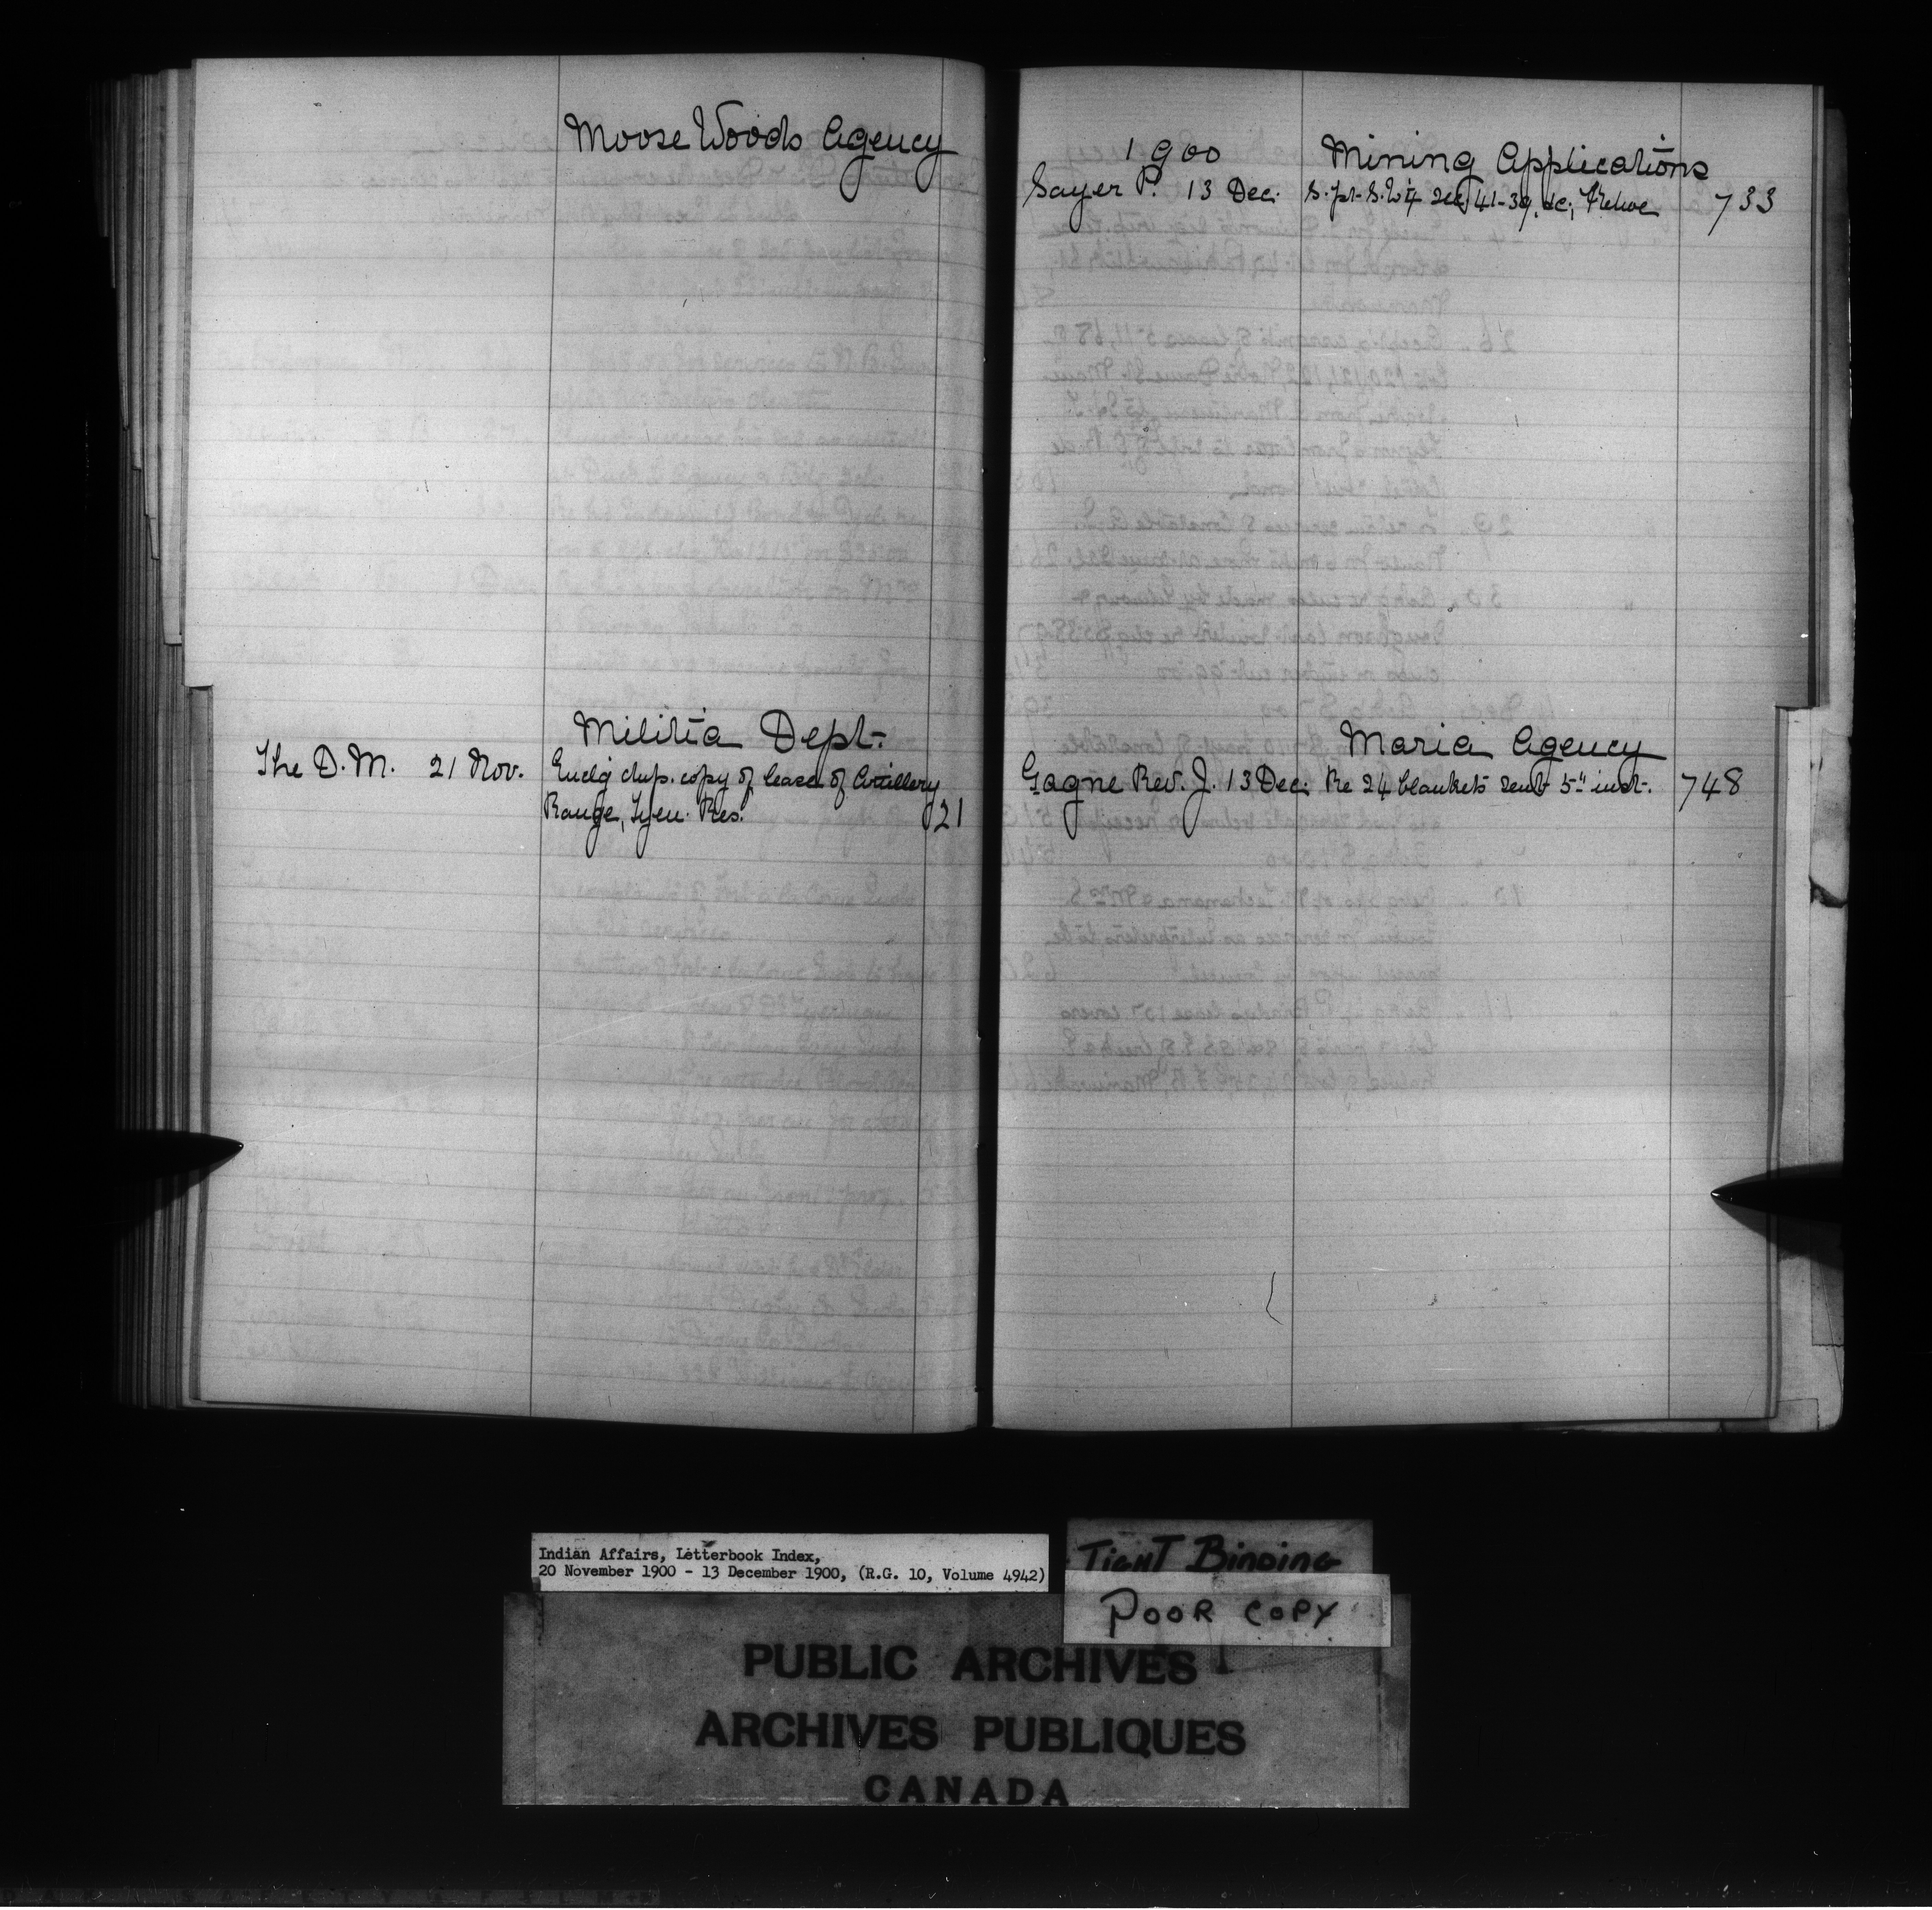 Moose Woods Agency
Militia Dept.
The D.M. 21 Nov. Enclg dup. copy of lease of Artillery
Range, Tyen. Res. 21
1900 Mining Applications
Sayer P. 13 Dec. S. pt. S.W 1/4 Sec 41-39, &c,  733
Maria Agency
Gagne Rev. J. 13 Dec. Re 24 blankets sent 5" inst. 748
Indian Affairs, Letterbook Index,
20 November 1900 - 13 December 1900, (R.G. 10, Volume 4942)
TIGHT BINDING
POOR COPY
PUBLIC ARCHIVES
ARCHIVES PUBLIQUES
CANADA